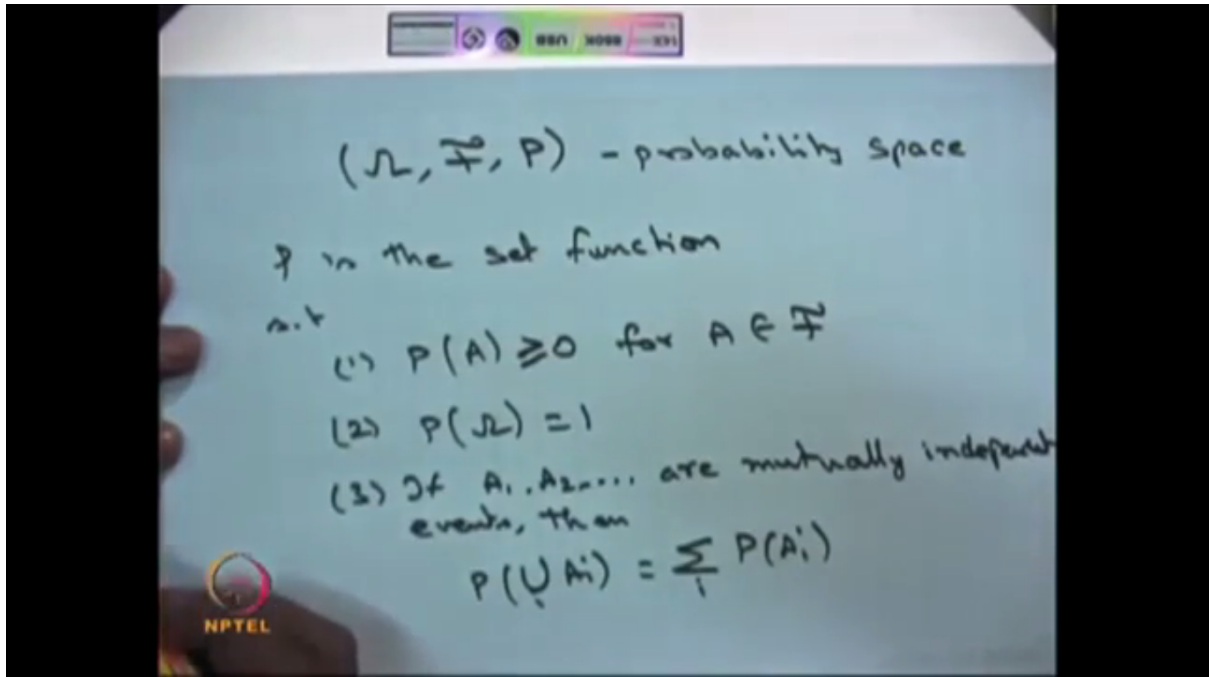 (Ω, F, P) - probability space
P is the set function
s.t
(1) P(A) ≥ 0 for A ∈ F
(2) P(Ω) = 1
(3) If A₁, A₂, .... are mutually independent
events, then
P(∪ Ai) = Σ P(Ai)
i i
NPTEL